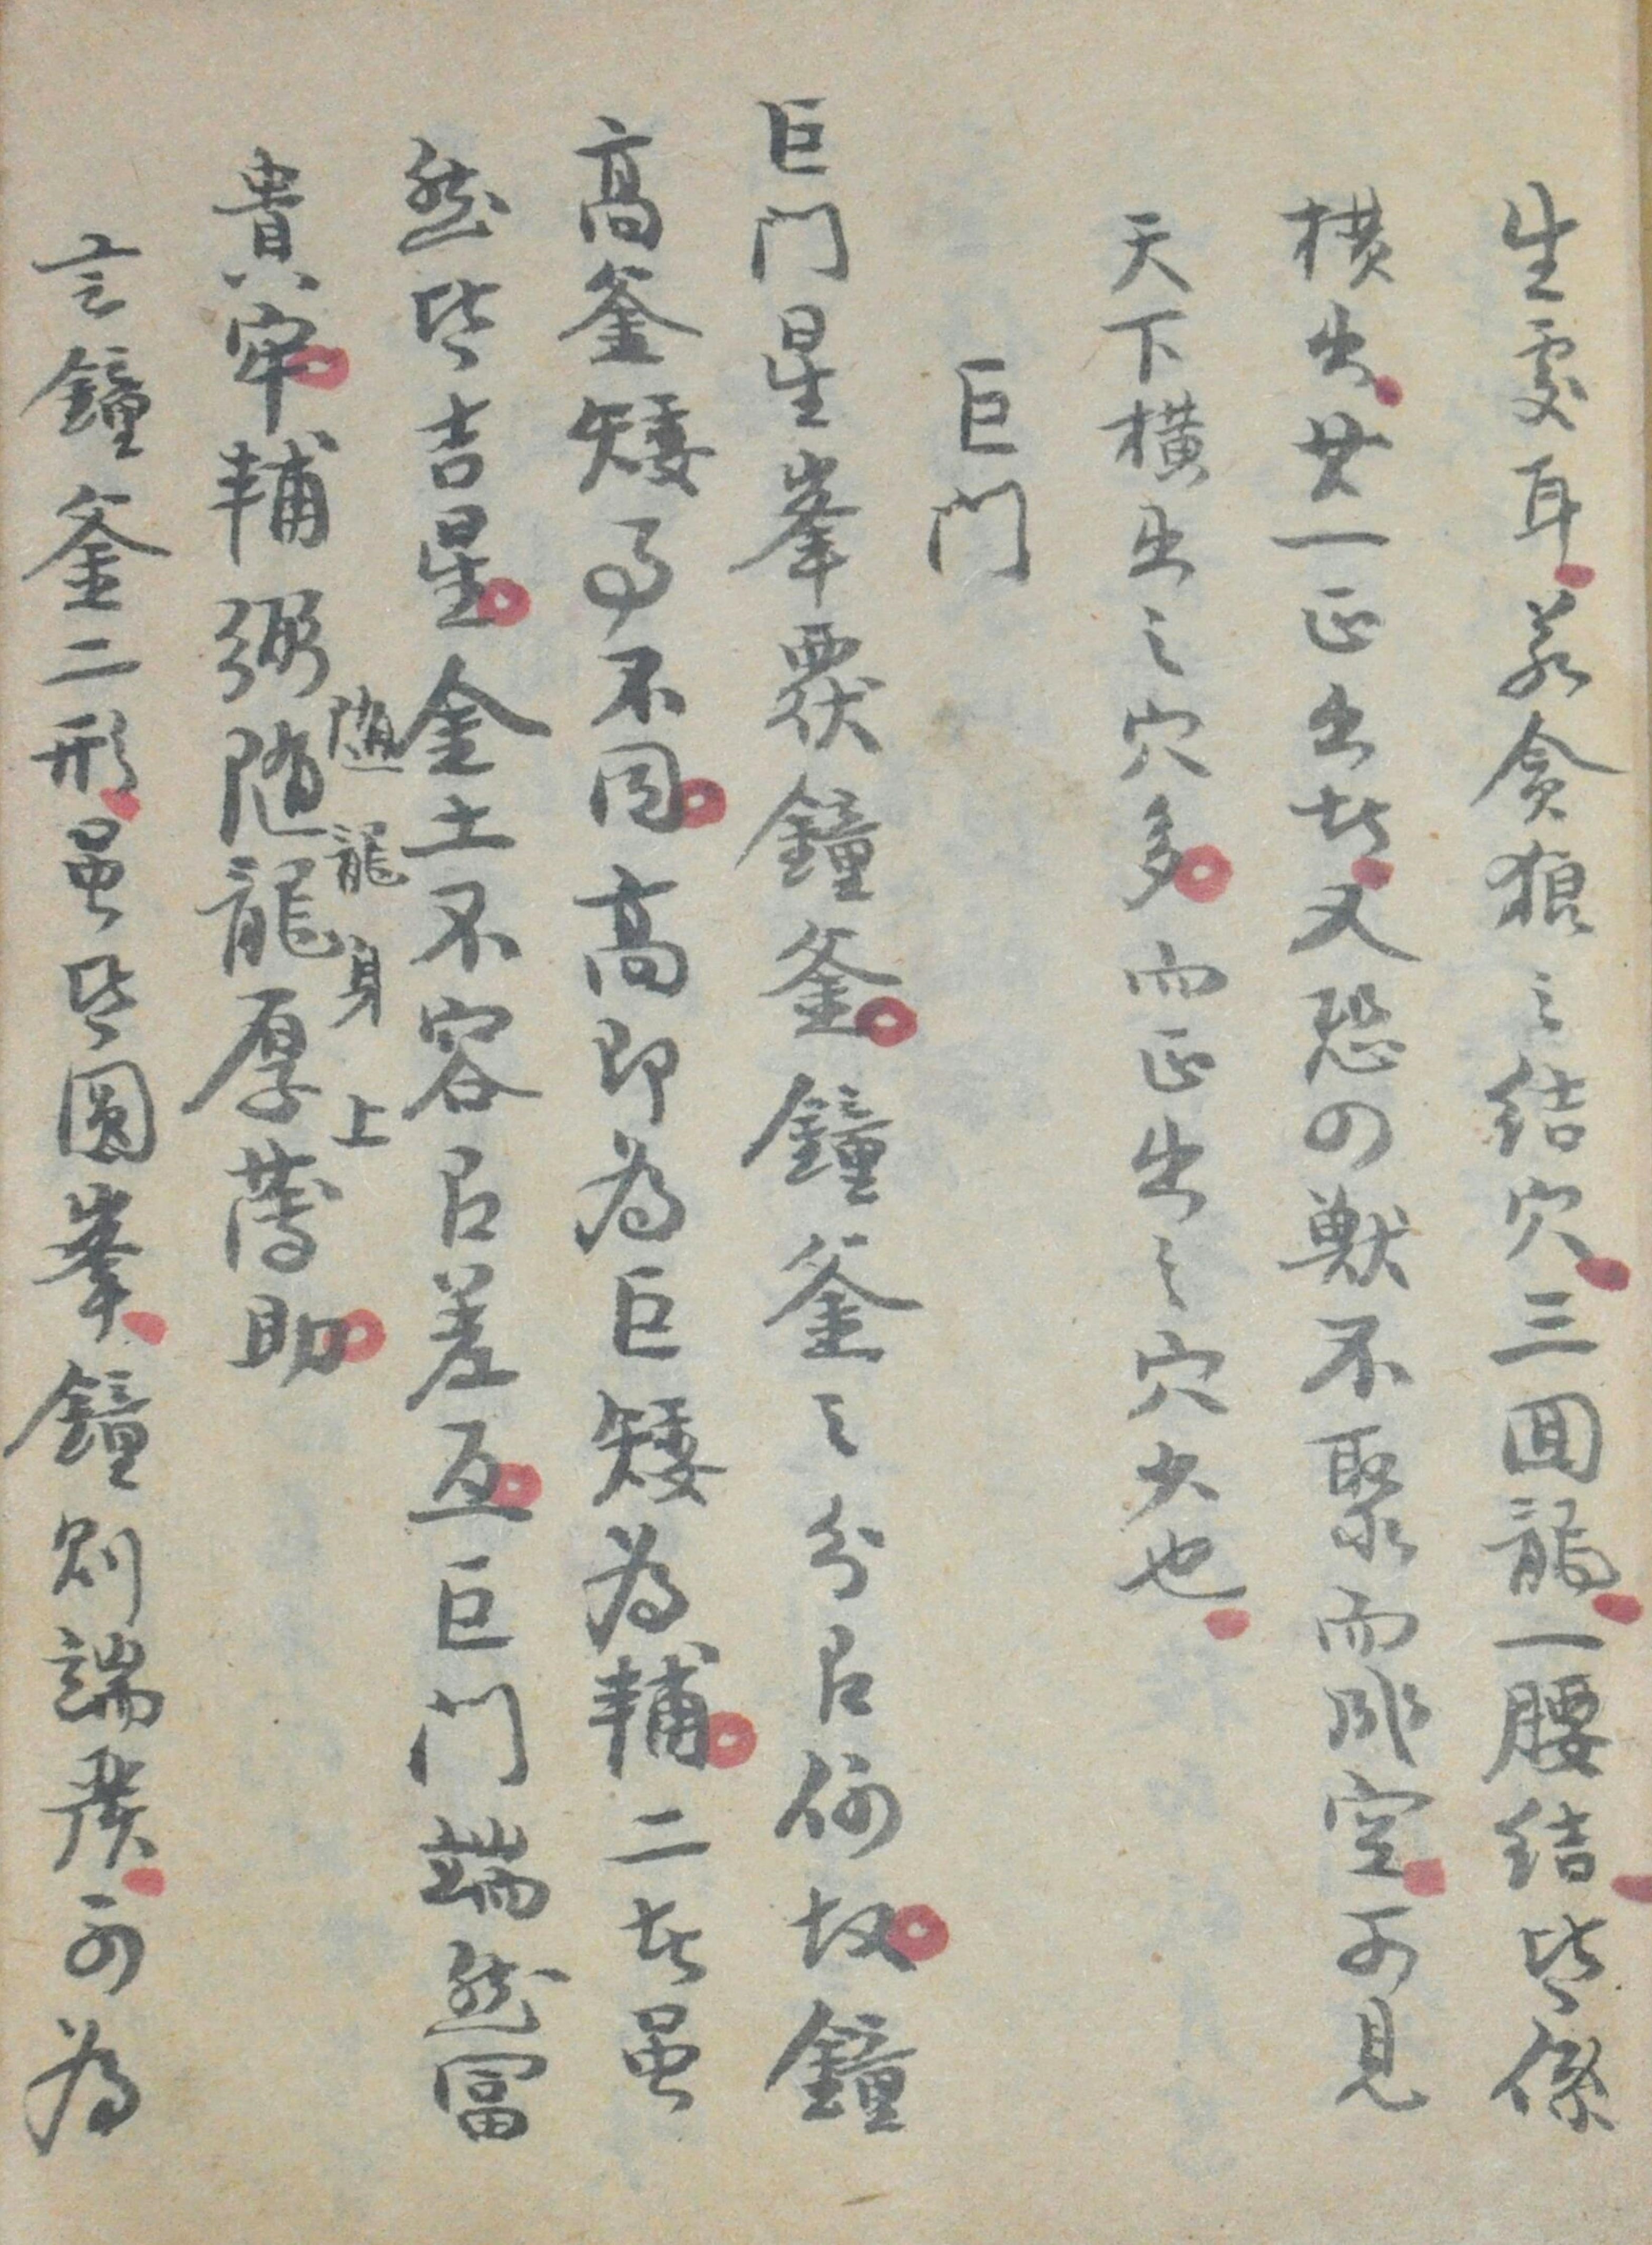 生處耳若貪狼之结穴三囬龍一腰结皆係
横出其一正出者又恐四獸不聚而空可見
天下橫出之穴多而正出之穴少也
巨門
巨门星峯覆鐘釜鐘釜之分㠯何故鐘
高釜矮了不同高即為巨矮為輔二者虽
然皆吉星金土不容㠯差互巨门端然冨
貴牢輔弼随龍厚薄助
随龍身上
言鐘釜二形虽皆圓峯鐘則端可為